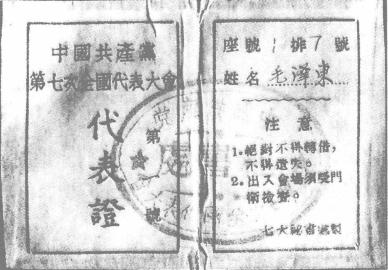 中國共產黨
第七次全國代表大會
代表證
第
號
座號 1 排 7 號
姓名 毛澤東
注意
1.絕對不得轉借，
不得遺失。
2.出入會場須受門
衛檢查。
七大秘書處製